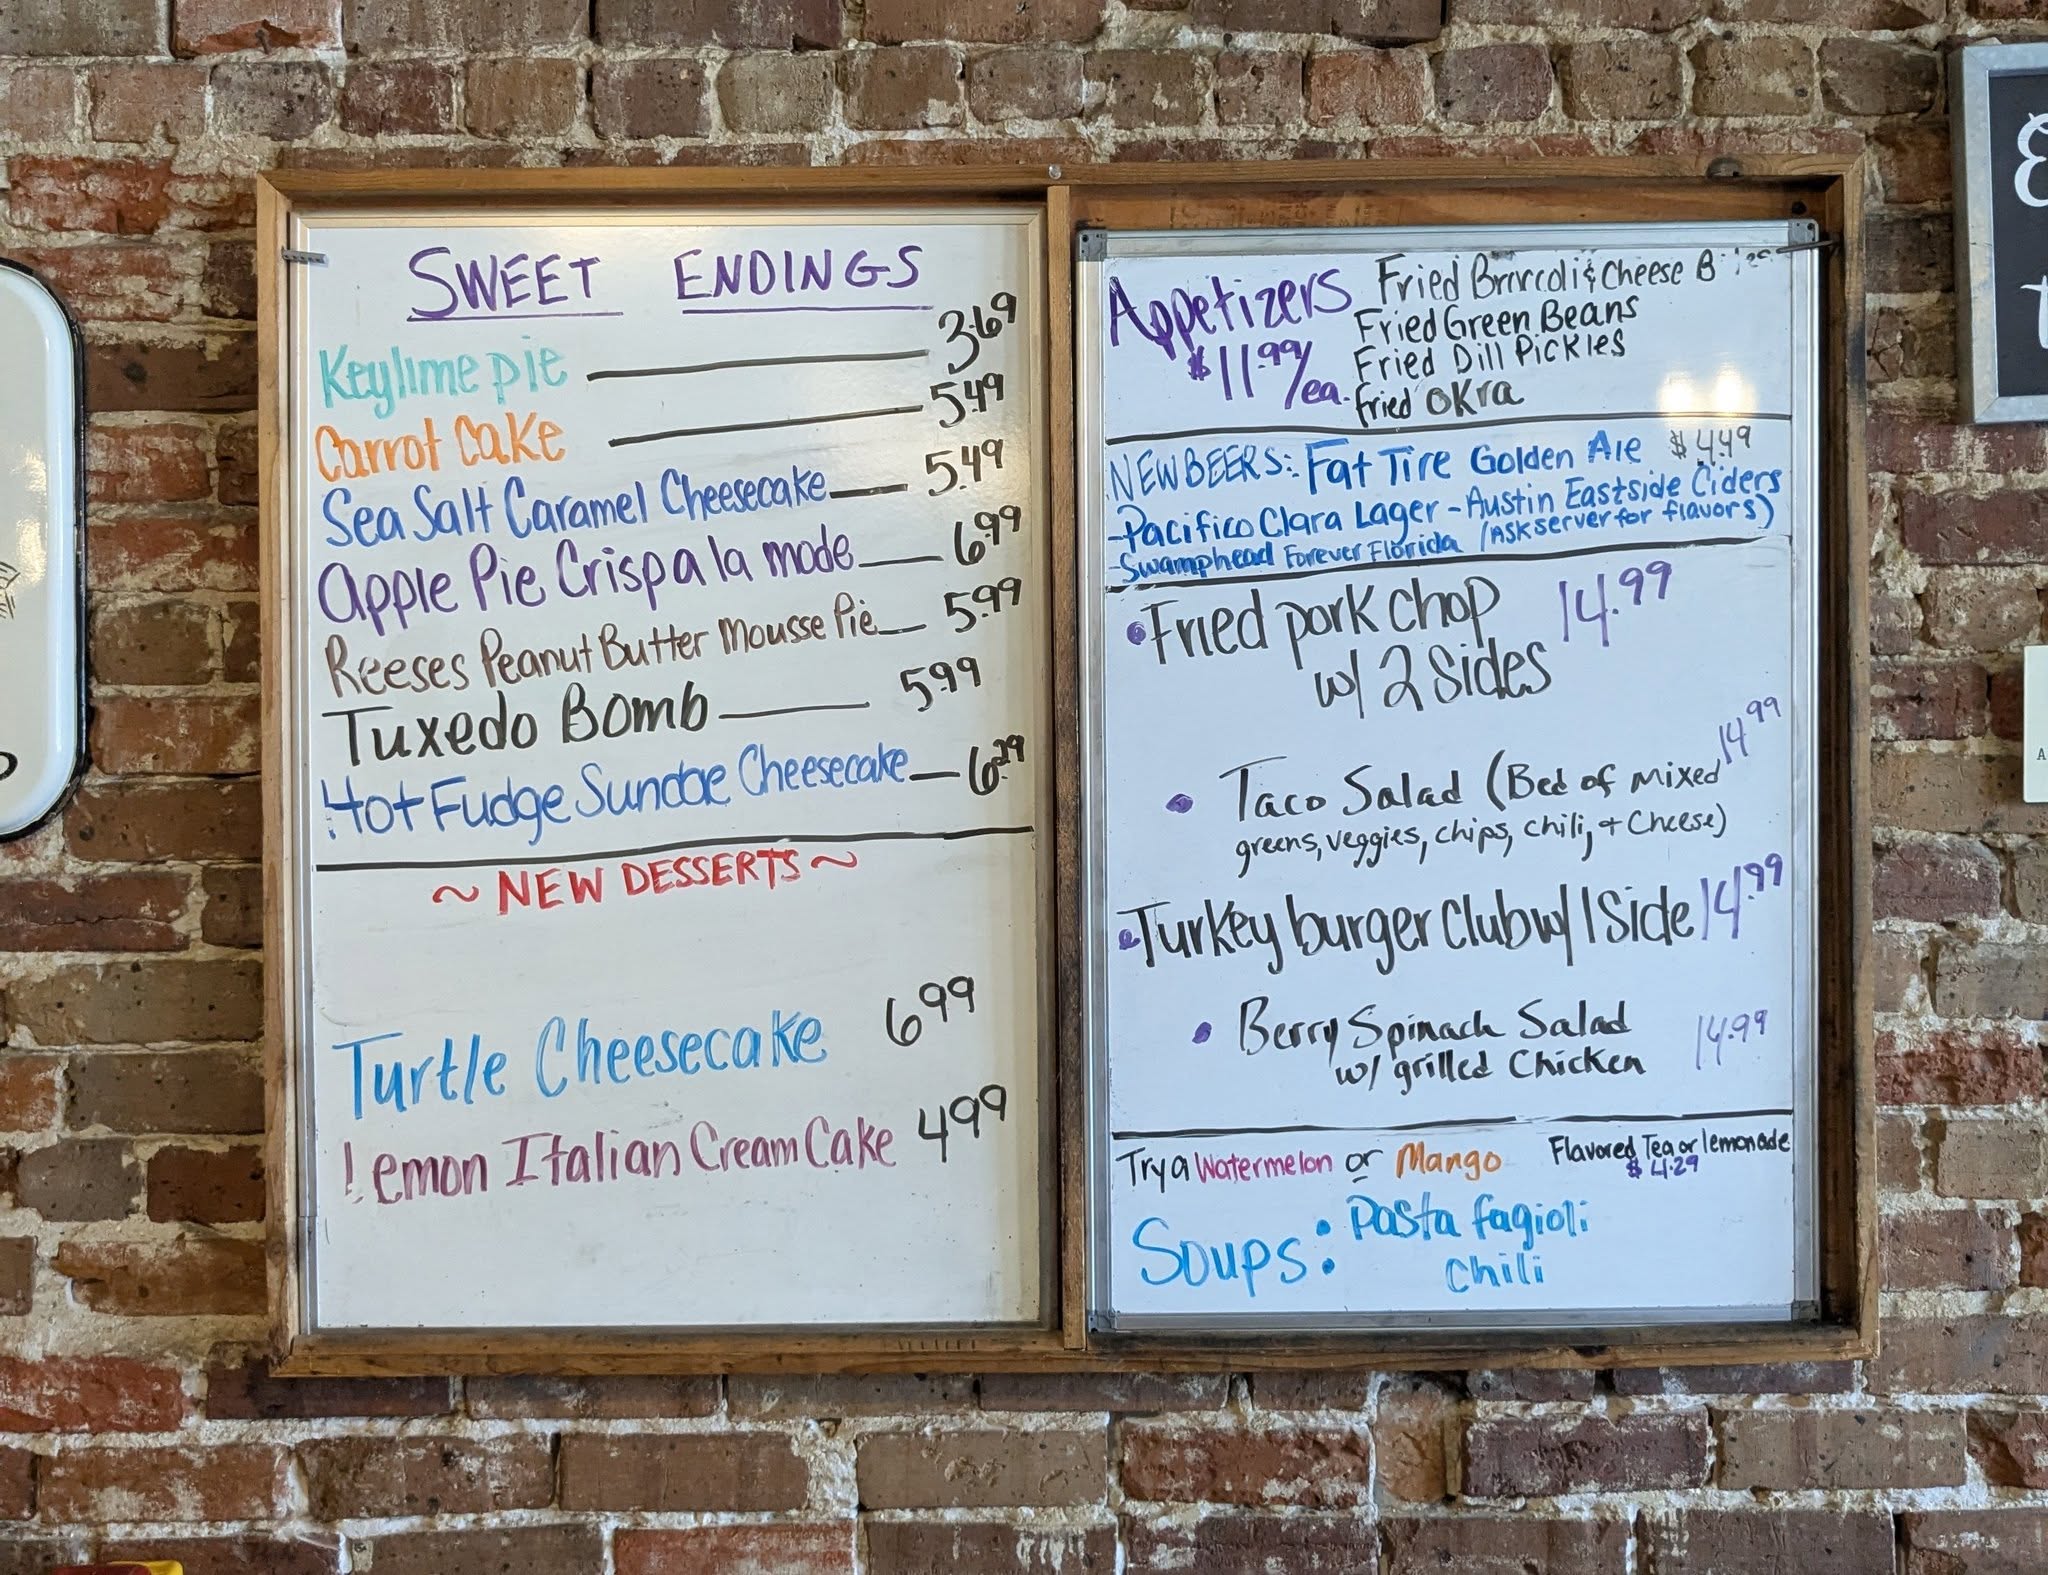 SWEET ENDINGS
Keylime pie 3.69
Carrot Cake 5.49
Sea Salt Caramel Cheesecake 5.49
Apple Pie Crisp a la mode 6.99
Reeses Peanut Butter Mousse Pie 5.99
Tuxedo Bomb 5.99
Hot Fudge Sundae Cheesecake 6.29
~ NEW DESSERTS ~
Turtle Cheesecake 6.99
Lemon Italian Cream Cake 4.99
Appetizers
$11.99/ea.
Fried Broccoli & Cheese
Fried Green Beans
Fried Dill Pickles
Fried Okra
NEW BEERS: Fat Tire Golden Ale $4.49
-Pacifico Clara Lager - Austin Eastside Ciders
-Swamphead Forever Florida (Ask server for flavors)
• Fried pork chop 14.99
w/ 2 Sides
• Taco Salad (Bed of mixed 14.99
greens, veggies, chips, chili, + Cheese)
• Turkey burger Club w/ 1 Side 14.99
• Berry Spinach Salad 14.99
w/ grilled Chicken
Try a Watermelon or Mango Flavored Tea or lemonade
$4.29
Soups: • Pasta fagioli
• Chili